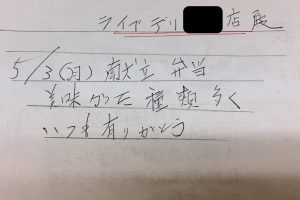 ライフデリ 店殿
5/3(月)献立弁当
美味かった種類多く
いつも有りがとう